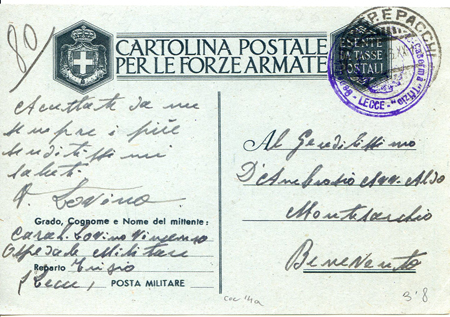 80/
CARTOLINA POSTALE
PER LE FORZE ARMATE
ESENTE
DA TASSE
POSTALI
PACCHI
LECCE
Accettate da me
sempre i più
saluti
V. Iovino
Grado, Cognome e Nome del mittente:
Iovino Vincenzo
Ospedale Militare
Reparto
Lecce
POSTA MILITARE
Al Gentilissimo
D'Ambrosio Avv. Aldo
Montesarchio
Benevento
3'8